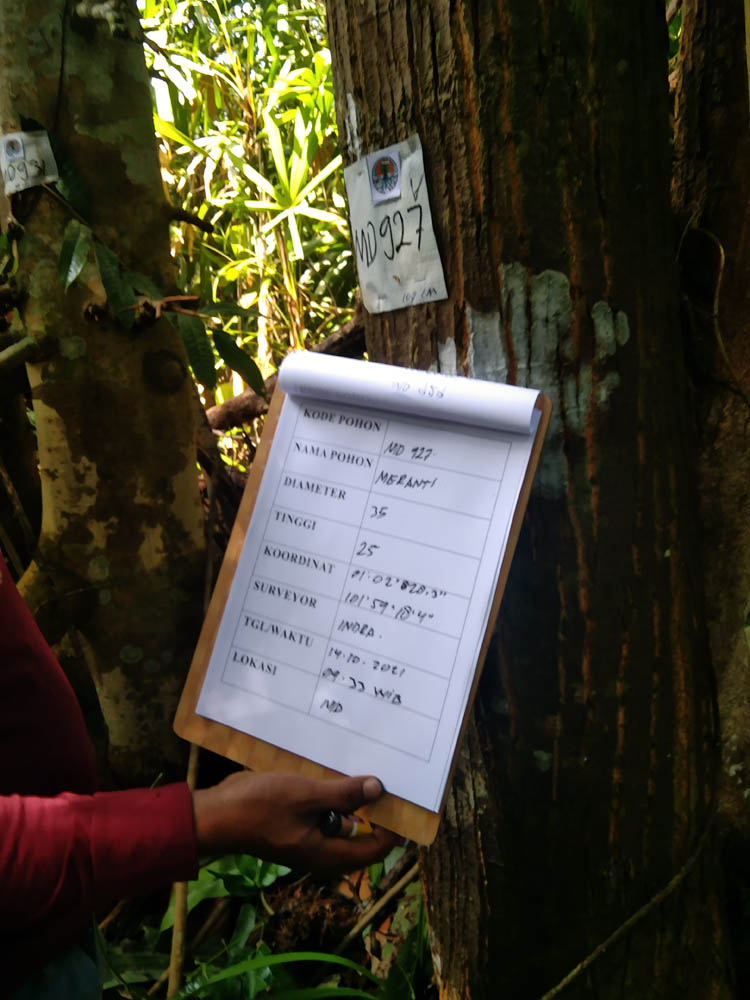 MD 927
109 CM
KODE POHON
MD 927
NAMA POHON
MERANTI
DIAMETER
35
TINGGI
25
KOORDINAT
01°02'
101°59'18.4"
SURVEYOR
INDRA.
TGL/WAKTU
14.10.2021
09.33 WIB
LOKASI
MD